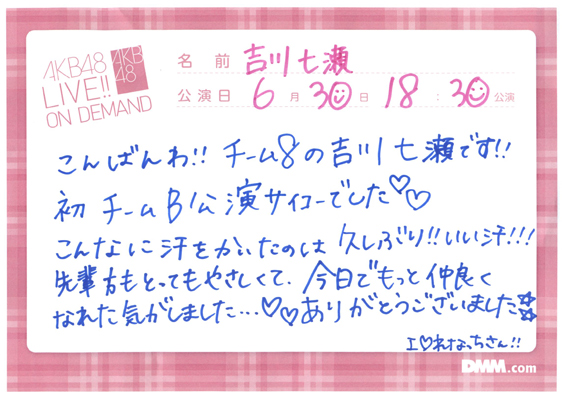 AKB48
LIVE!!
ON DEMAND
AKB
48
名前 吉川七瀬
公演日 6月30日 18:30公演
こんばんわ!! チーム8の吉川七瀬です!!
初チームB公演サイコーでした♡♡
こんなに汗をかいたのは久しぶり!!いい汗!!!
先輩方もとってもやさしくて、今日でもっと仲良く
なれた気がしました…♡♡ありがとうございました☆☆
I♡れなっちさん!!
DMM.com